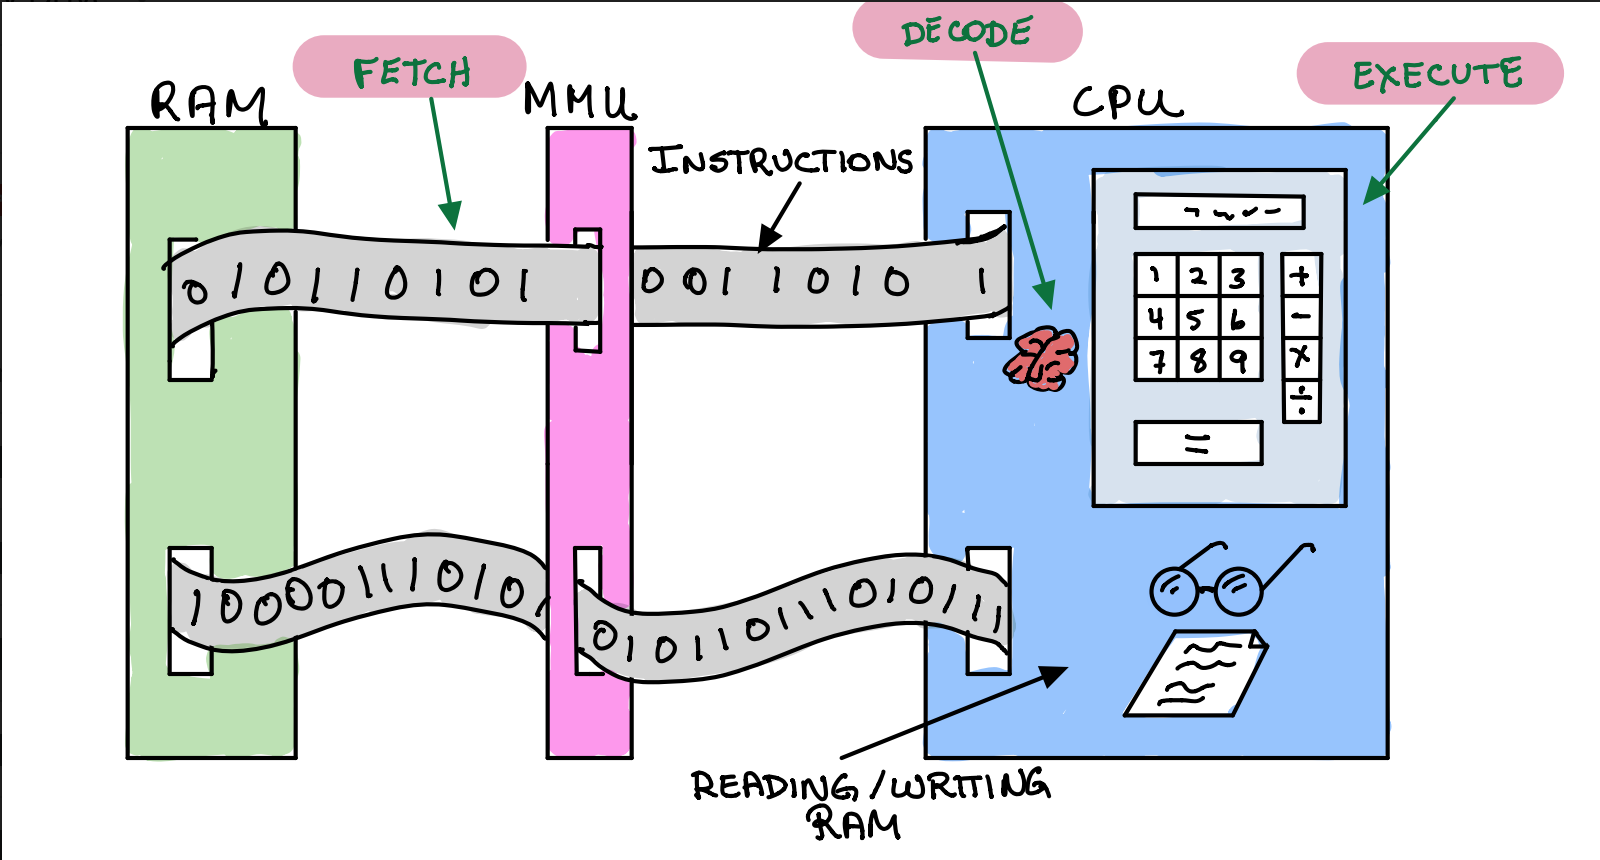 DECODE
FETCH
EXECUTE
RAM
MMU
CPU
INSTRUCTIONS
0 1 0 1 1 0 1 0 1
0 0 1 1 0 1 0 1
1 2 3 +
4 5 6 -
7 8 9 x
÷
=
1 0 0 0 0 1 1 1 0 1 0 1
0 1 0 1 1 0 1 1 1 0 1 0 1 1 1
READING/WRITING
RAM